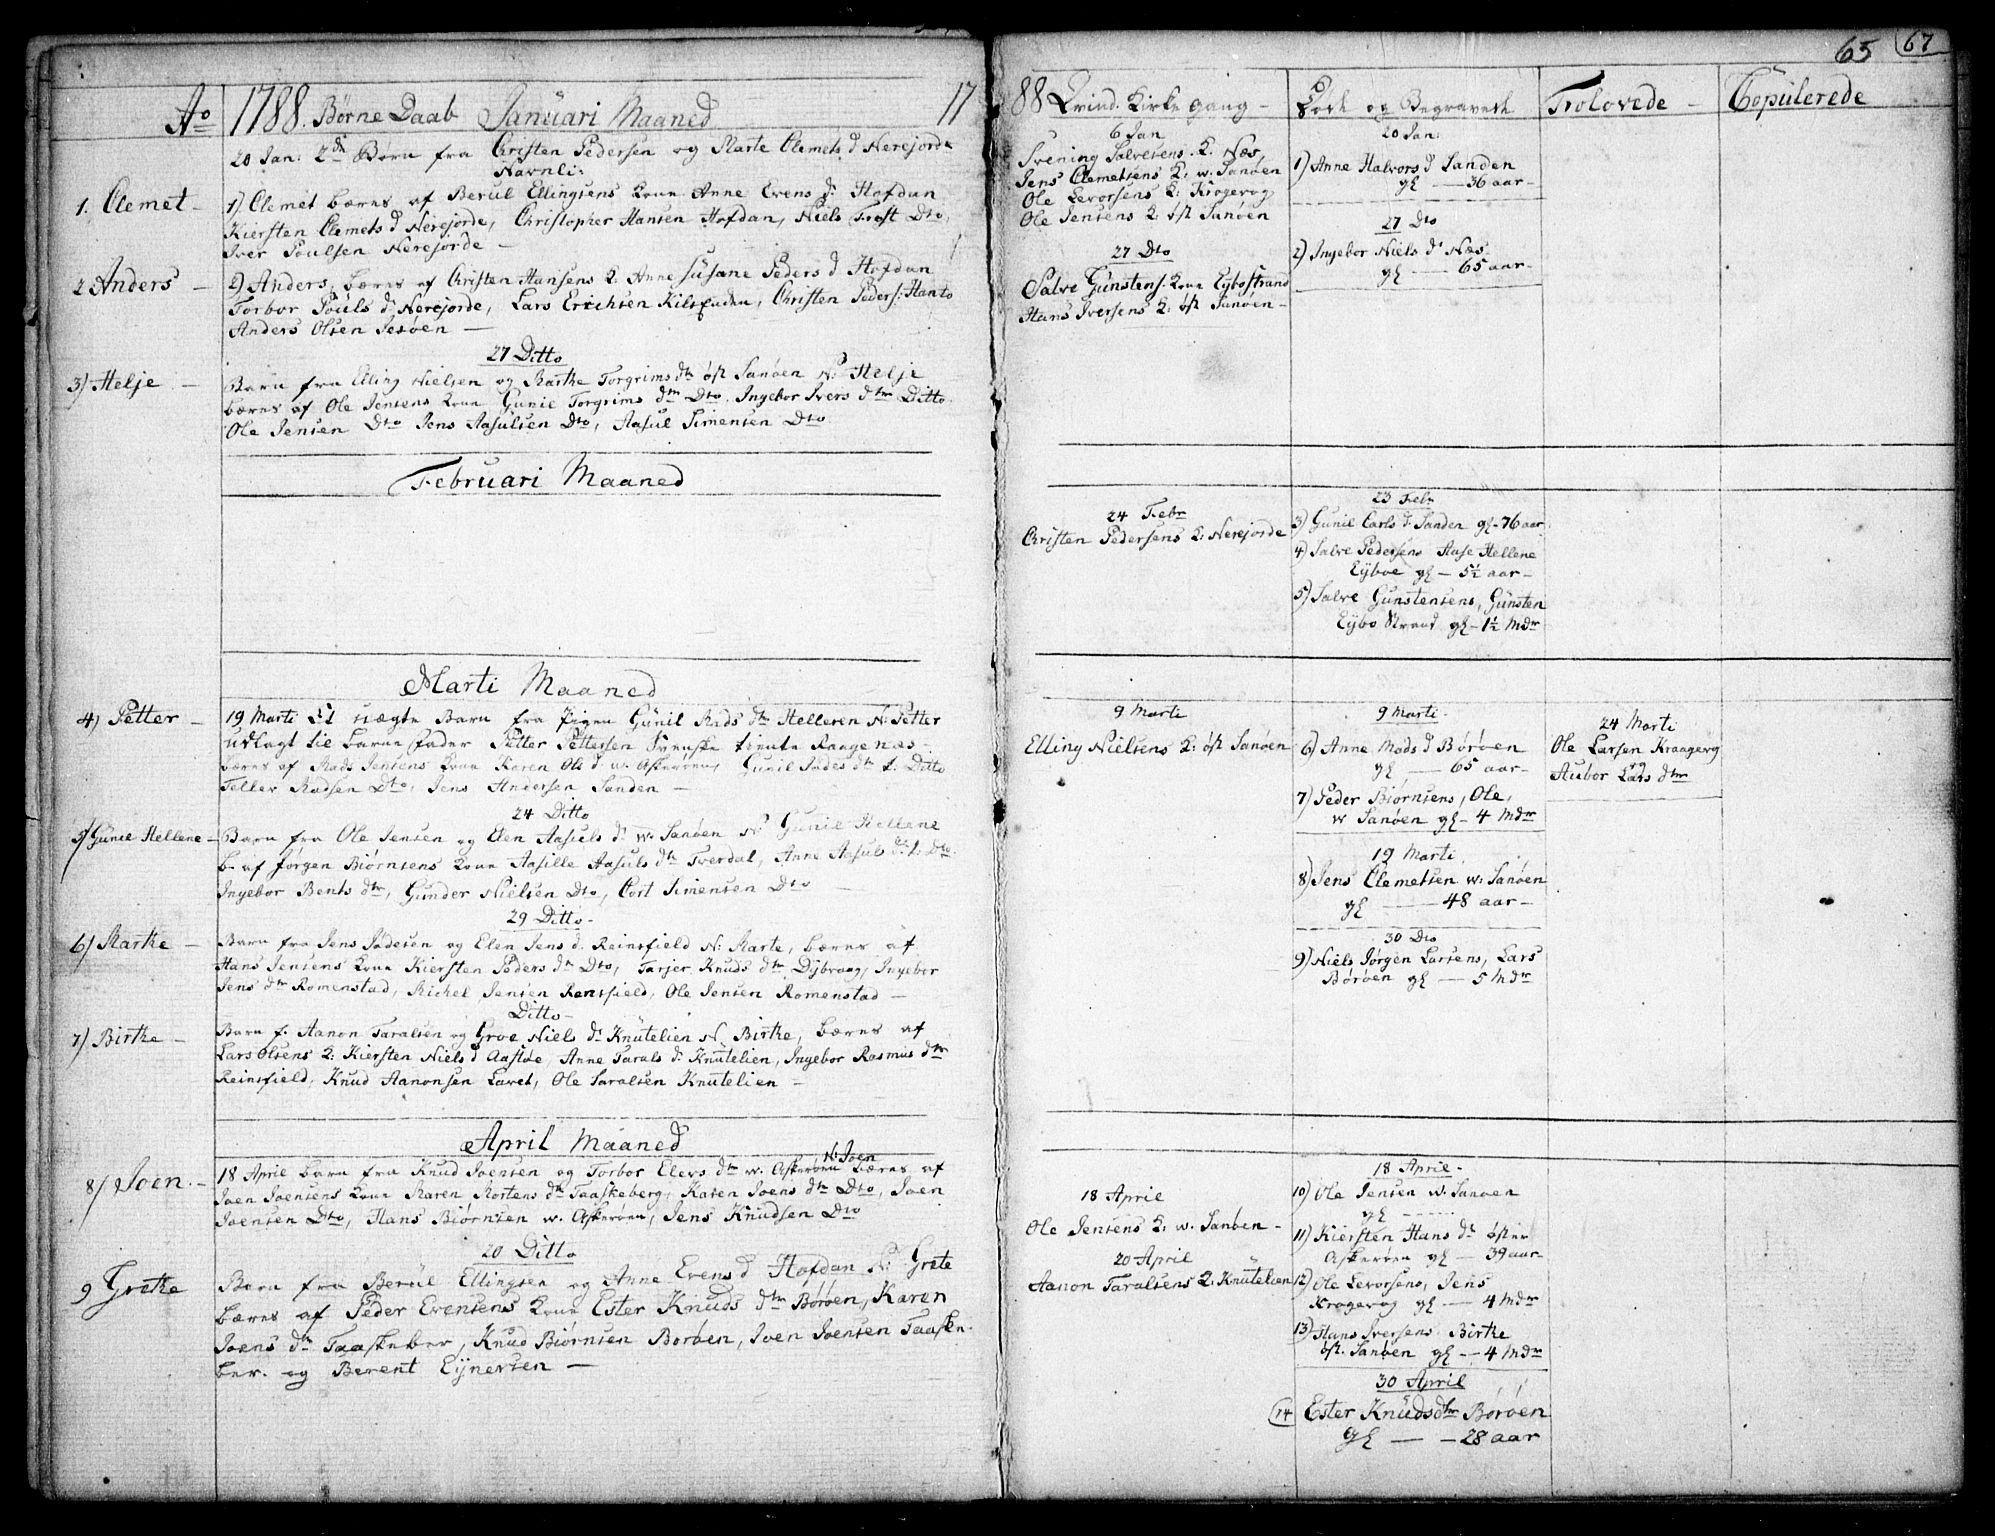 65 67
Ao 1788. Børne Daab Januari Maaned 17
20 Jan: 2de Børn fra Christen Pedersen og Marte Clemets d Nerejorde
Navnli:
1. Clemet –
1) Clemet bæres af Berul Ellingsens kone Anne Evens dr Hofdan
Kiersten Clemets d Nerejorde, Christopher Hansen Hofdan, Niels Trost Dto,
Iver Poulsen Nerejorde –
2 Anders –
2) Anders, bæres af Christen Hansens K: Anne Susane Peders d Hofdan
Torbor Pouls dr Nerejorde, Lars Erichsen Kilsfuden, Christen Peders: Hanto
Anders Olsen Jesøen –
27 Ditto
3) Helje –
Barn fra Elling Nielsen og Marthe Torgrims dtr øst Sanøen N: Helje
bæres af Ole Jensens kone Gunil Torgrims dtr Dto, Ingebor Ivers dtr Ditto
Ole Jensen Dto Jens Aasulsen Dto, Aasul Simensen Dto
Februari Maaned
Marti Maaned
4) Petter –
19 Marti Et uægte Barn fra Pigen Gunil Mads dtr Helleren N: Petter
udlagt til barne fader Petter Pettersen Svenske tiente Raagenæs –
bæres af Mads Jensens kone Karen Ols d w. Askerøen, Gunil Jodes dtr Ditto
Tellev Madsen Dto, Jens Andersen Sanden –
24 Ditto
5) Gunil Hellene –
Barn fra Ole Jensen og Elen Aasuls dr w. Sanøen N: Gunil Hellene
b. af Jørgen Biørnsens kone Aasille Aasuls dtr Tverdal, Anne Aasuls dr Dto
Ingebor Bents dtr, Gunder Nielsen Dto, Cort Simensen Dto –
29 Ditto –
6) Marthe –
Barn fra Jens Jodesen og Elen Jens d. Reinsfield N: Marte, bæres af
Hans Jensens kone Kiersten Peders dtr Dto, Tarjer Knuds dtr Dybvaag, Ingebor
Jens dtr Romenstad, Michel Jensen Rensfield, Ole Jensen Romenstad –
Ditto –
7) Birthe –
Barn f. Aanon Taralsen og Groe Niels dr Knutelien N. Birthe, bæres af
Lars Olsens K: Kiersten Niels d Aastøe, Anne Tarals dr Knutelien, Ingebor Rasmus dtr
Reinsfield, Knud Aanonsen Lavet, Ole Taralsen Knutelien –
April Maaned
N: Joen
8) Joen. –
18 April barn fra Knud Joensen og Torbor Elevs dtr w. Askerøen bæres af
Joen Joensens kone Maren Mortens dtr Taaskeberg, Karen Joens dtr Dto, Joen
Joensen Dto, Hans Biørnsen w. Askerøen, Jens Knudsen Dto
20 Ditto
9 Grethe
Barn fra Berul Ellingsen og Anne Evens d Hofdan N: Grete
bæres af Peder Evensens kone Ester Knuds dtr Børøen, Karen
Joens dtr Taaskeber, Knud Biørnsen Borøen, Joen Joensen Taaske-
ber. og Berent Eynersen –
88 Qvind. Kirke gang –
6 Jan
Svening Salvesens. K. Næs
Jens Clemetsens K: w. Sanøen
Ole Levorsens K: Krogevog
Ole Jensens K: øst Sanøen
27 Dto
Salve Gunstens. kone Eybostrand
Hans Iversens K: øst Sanøen –
24 Febr
Christen Pedersens K: Nerejorde
9 Marti
Elling Nielsens K: øst Sanøen
18 April
Ole Jensens K: w. Sanøen –
20 April
Aanon Taralsens K: Knutelien
Døde og Begravede
20 Jan:
1) Anne Halvors d Sanden
gl — 36 aar –
27 Dto
2) Ingebor Niels dr Næs
gl — 65 aar –
23 Febr
3) Gunil Carls d. Sanden gl – 76 aar
4) Salve Pedersens Aase Hellene
Eyboe gl – 5½ aar –
5) Salve Gunstensens, Gunsten
Eybo Strand gl – 1½ Mdr
9 Marti –
6) Anne Mads d Børøen
gl — 65 aar –
7) Peder Biørnsens, Ole,
w Sanøen gl – 4 Mdr
19 Marti
8) Jens Clemetsen w: Sanøen
gl — 48 aar –
30 Dto
9) Niels Jørgen Larsens, Lars
Børøen gl — 5 Mdr
18 April –
10) Ole Jensen w. Sanøen
gl - - - - -
11) Kiersten Hans dr øster
Askerøen gl — 39 aar
12) Ole Levorsens, Jens
Krogevog gl — 4 Mdr
13) Hans Iversens Birthe
øst. Sanøen gl — 4 Mdr
30 April
14 Ester Knudsdtr Børøen
gl — – 28 aar
Trolovede –
24 Marti
Ole Larsen Kraagevog
Aubor Lars dtr
Copulerede